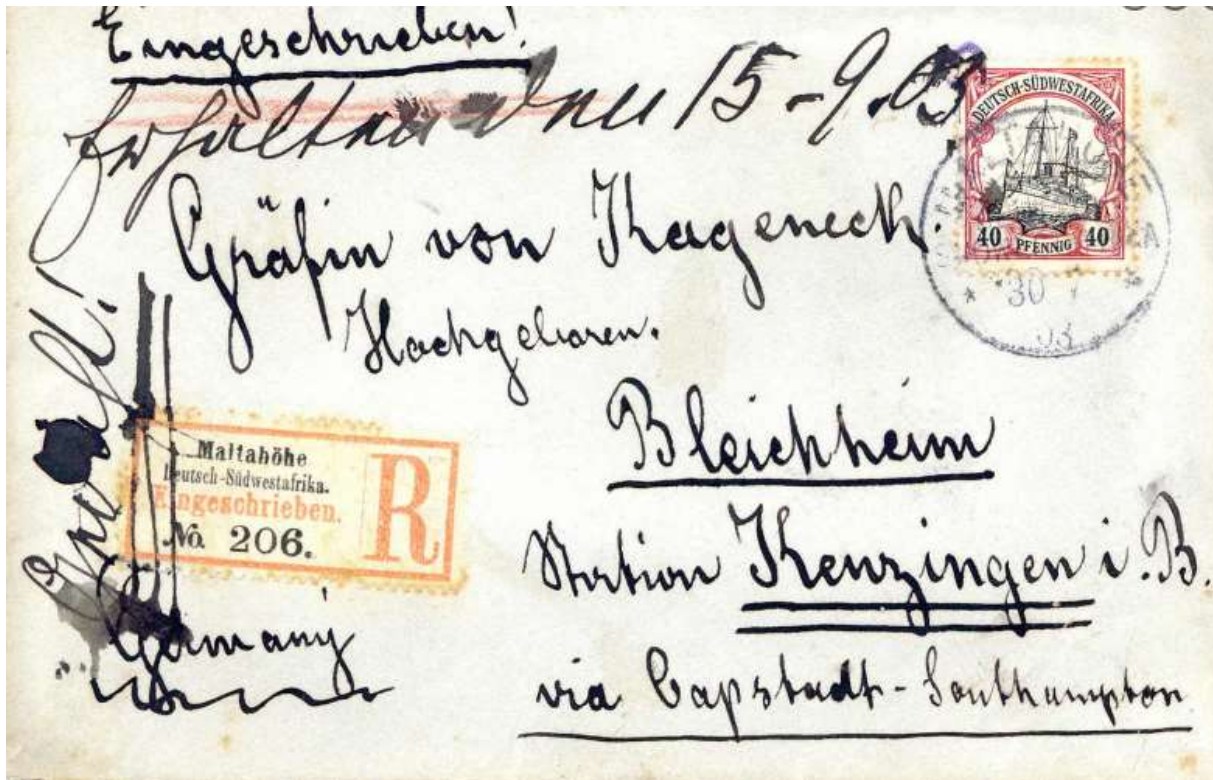 Eingeschrieben!
Erhalten den 15-9.03
DEUTSCH-SÜDWESTAFRIKA
40 PFENNIG 40
30 7
03
Gräfin von Kageneck.
Hochgeboren.
Bleichheim
Station Kenzingen i. B.
via Capstadt - Southampton
Maltahöhe
Deutsch-Südwestafrika.
Eingeschrieben.
No. 206.
R
Germany